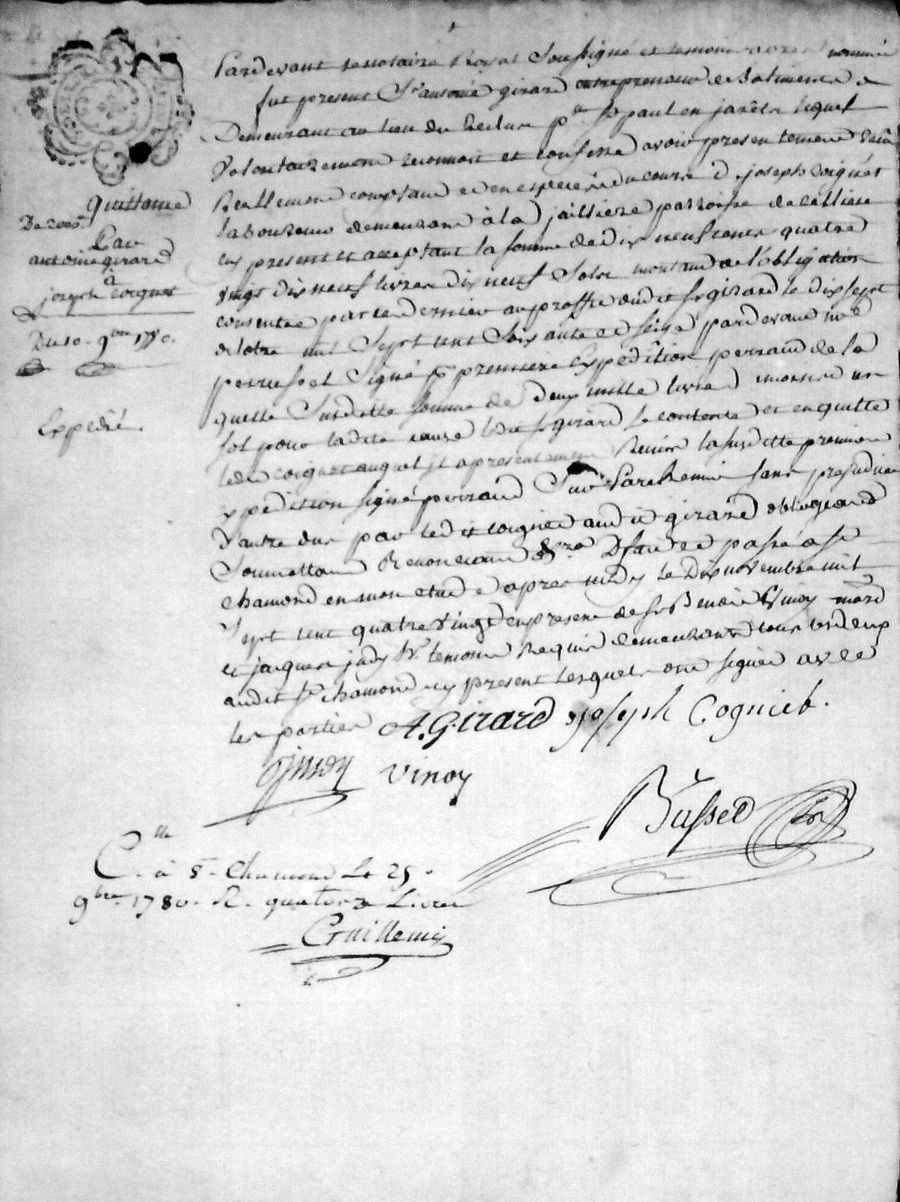 Pardevant le notaire Royal Soussigné et temoins aprés nommés
fut present Sr antoine girard entrepreneur de Batiments
Demeurant au lieu du Reclus psse St paul en jarêts lequel
Volontairement reconnoit et confesse avoir presentement Reçu
Reellement comptant et en especes du cours d joseph Coignet
laboureur demeurant à la jailliere parroisse de
cy present et acceptant la somme de dix neuf cents quatre
vingt dix neuf livres dix neuf Sols montant de l'obligation
consentie par ce dernier au proffit dudit Sr girard le dix sept
octobre mil Sept cent Soixante et seize pardevant me
et Signé pr premiere expedition perraud de la
quelle Susditte somme de deux mille livres moins un
Sol pour ladite cause ledit Sr girard Se contente et en quitte
ledit Coignet auquel il a presentement Remis la susditte premiere
expedition signé perraud Sur Parchemin sans prejudice
d'autre dus par ledit Coignet audit girard obligeant
Soumettant Renonceant &ra Dfait et passé a St
chamond en mon etude apres midy le Dix novembre mil
Sept cent quatre Vingt en presence de Sr Benoit Vinoy mard
et jacques temoins Requis demeurants tous les deux
audit St chamond cy present lesquels ont signés avec
les parties A. Girard joseph Cogniet.
Vinoy
Busset
Quittance
De 2000#
Par
antoine girard
à
joseph Coignet
Du 10. 9bre 1780.
Expedié
C.lle à St Chamond Le 25.
9bre 1780. R. quatorze Livres
Guillemin